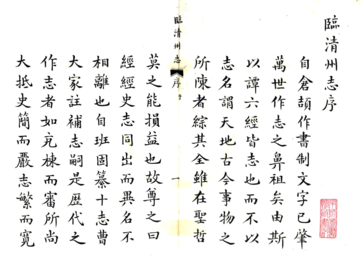 臨清州志序
自倉頡作書制文字已肇
萬世作志之鼻祖矣由斯
以譚六經皆志也而不以
志名謂天地古今事物之
所陳者綜其全雖在聖哲
臨清州志序
一
莫之能損益也故尊之曰
經經史志同出而異名不
相離也自班固纂十志曹
大家註補志嗣是歷代之
作志者如充棟而審所尚
大抵史簡而嚴志繁而寬